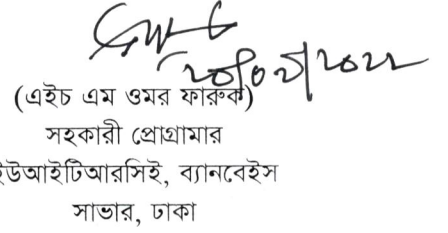 ২০/০৯/২০২২
(এইচ এম ওমর ফারুক)
সহকারী প্রোগ্রামার
ইউআইটিআরসিই, ব্যানবেইস
সাভার, ঢাকা